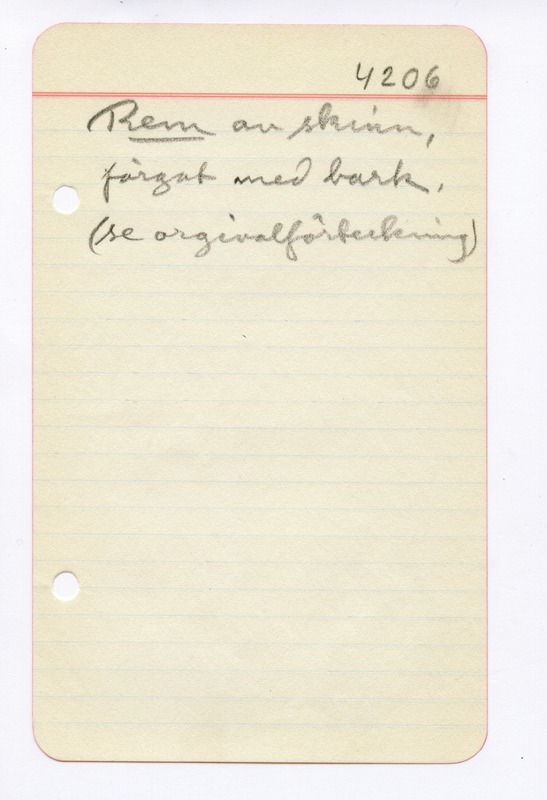 4206
Rem av skinn,
färgat med bark.
(se orgivalförteckning)